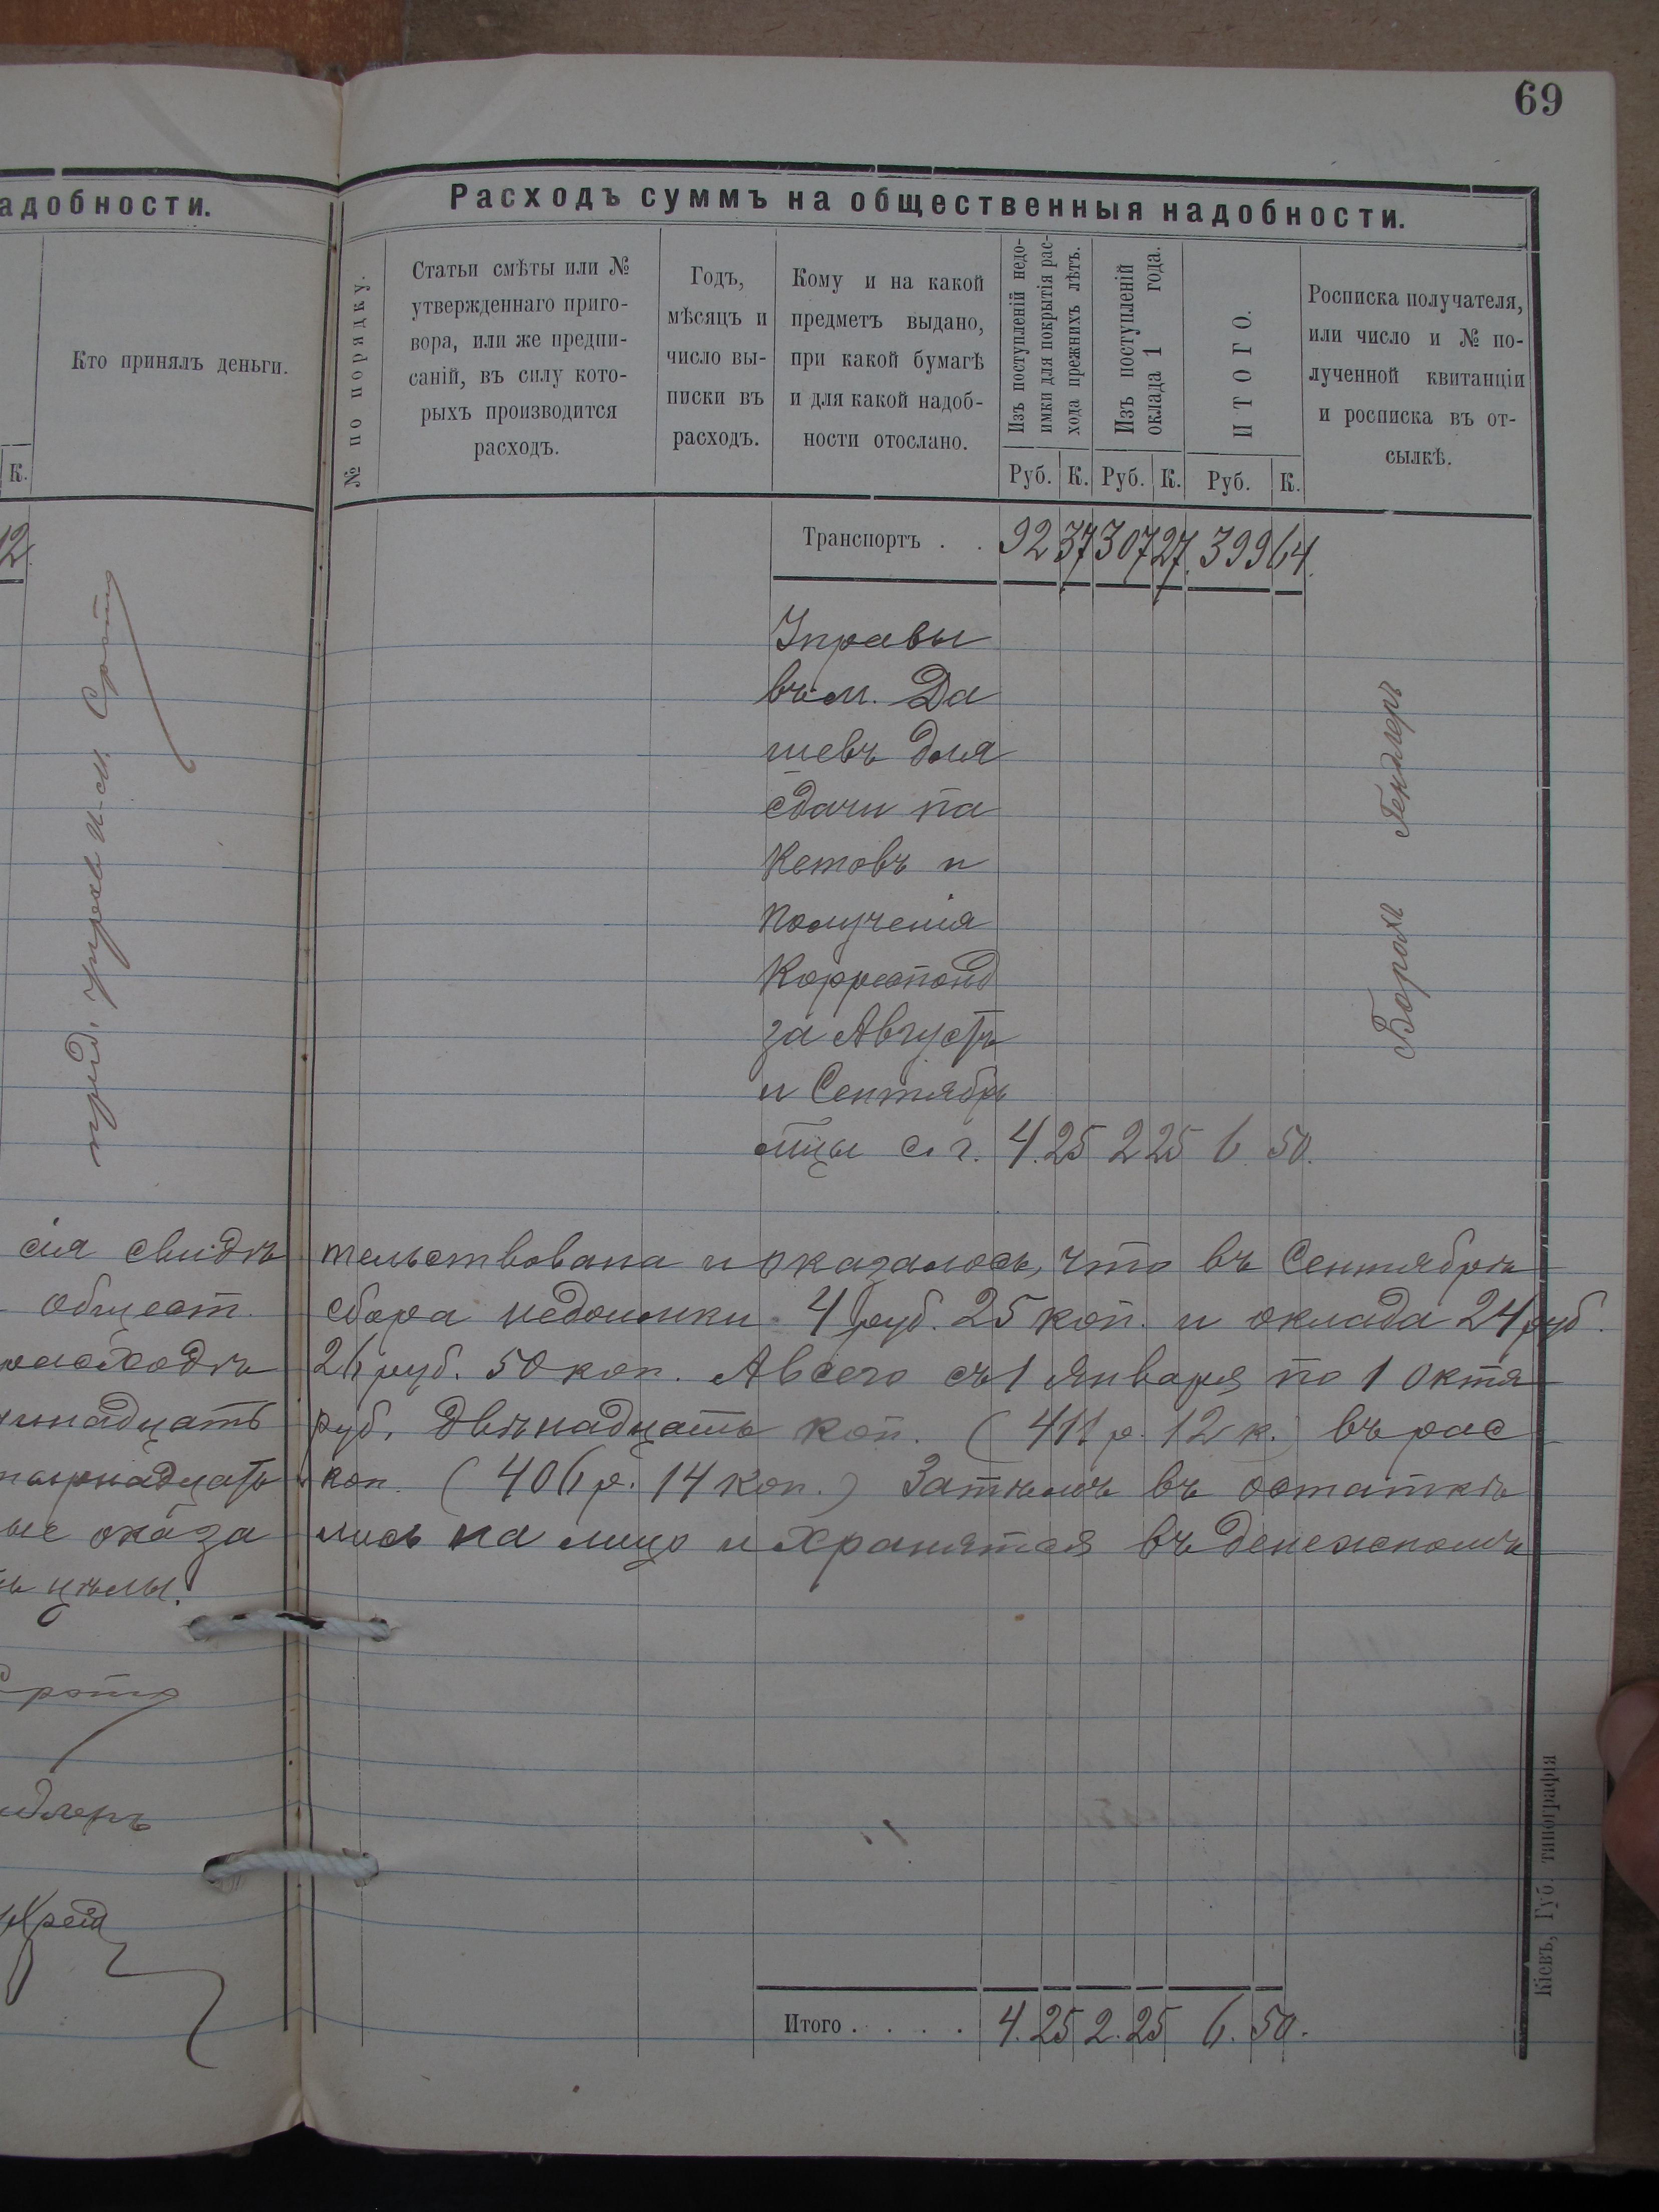 69
адобности.
Кто принялъ деньги.
К.
12.
предс. управы и-м. Сроти
сія свидѣ
общест.
расходѣ
надцать
надцать
ые оказа
цѣлы.
Расходъ суммъ на общественныя надобности.
№ по порядку.
Статьи смѣты или №
утвержденнаго приго-
вора, или же предпи-
саній, въ силу кото-
рыхъ производится
расходъ.
Годъ,
мѣсяцъ и
число вы-
писки въ
расходъ.
Кому и на какой
предметъ выдано,
при какой бумагѣ
и для какой надоб-
ности отослано.
Изъ поступленій недо-
имки для покрытія рас-
хода прежнихъ лѣтъ.
Изъ поступленій
оклада 1 года.
ИТОГО.
Росписка получателя,
или число и № по-
лученной квитанціи
и росписка въ от-
сылкѣ.
Руб. К. Руб. К. Руб. К.
Транспортъ . . 92 37 307 27. 399 64.
Управы
въ м. Да
шевъ для
сдачи па
кетовъ и
полученія
Корреспонд
за Августъ
и Сентябрь
мцы с. г. 4. 25 2 25 6. 50.
Борох Гендлеръ
тельствована и оказалось, что въ Сентябрѣ
сбора недоимки 4 руб. 25 коп. и оклада 24 руб.
26 руб. 50 коп. А всего съ 1 Января по 1 Октя
руб. двѣнадцать коп. (411 р. 12 к.) въ рас
коп. (406 р. 14 коп.) Затѣмъ въ остаткѣ
лись на лицо и хранятся въ денежномъ
Итого . . . . 4. 25 2. 25 6. 50.
Кіевъ, Губ. типографія